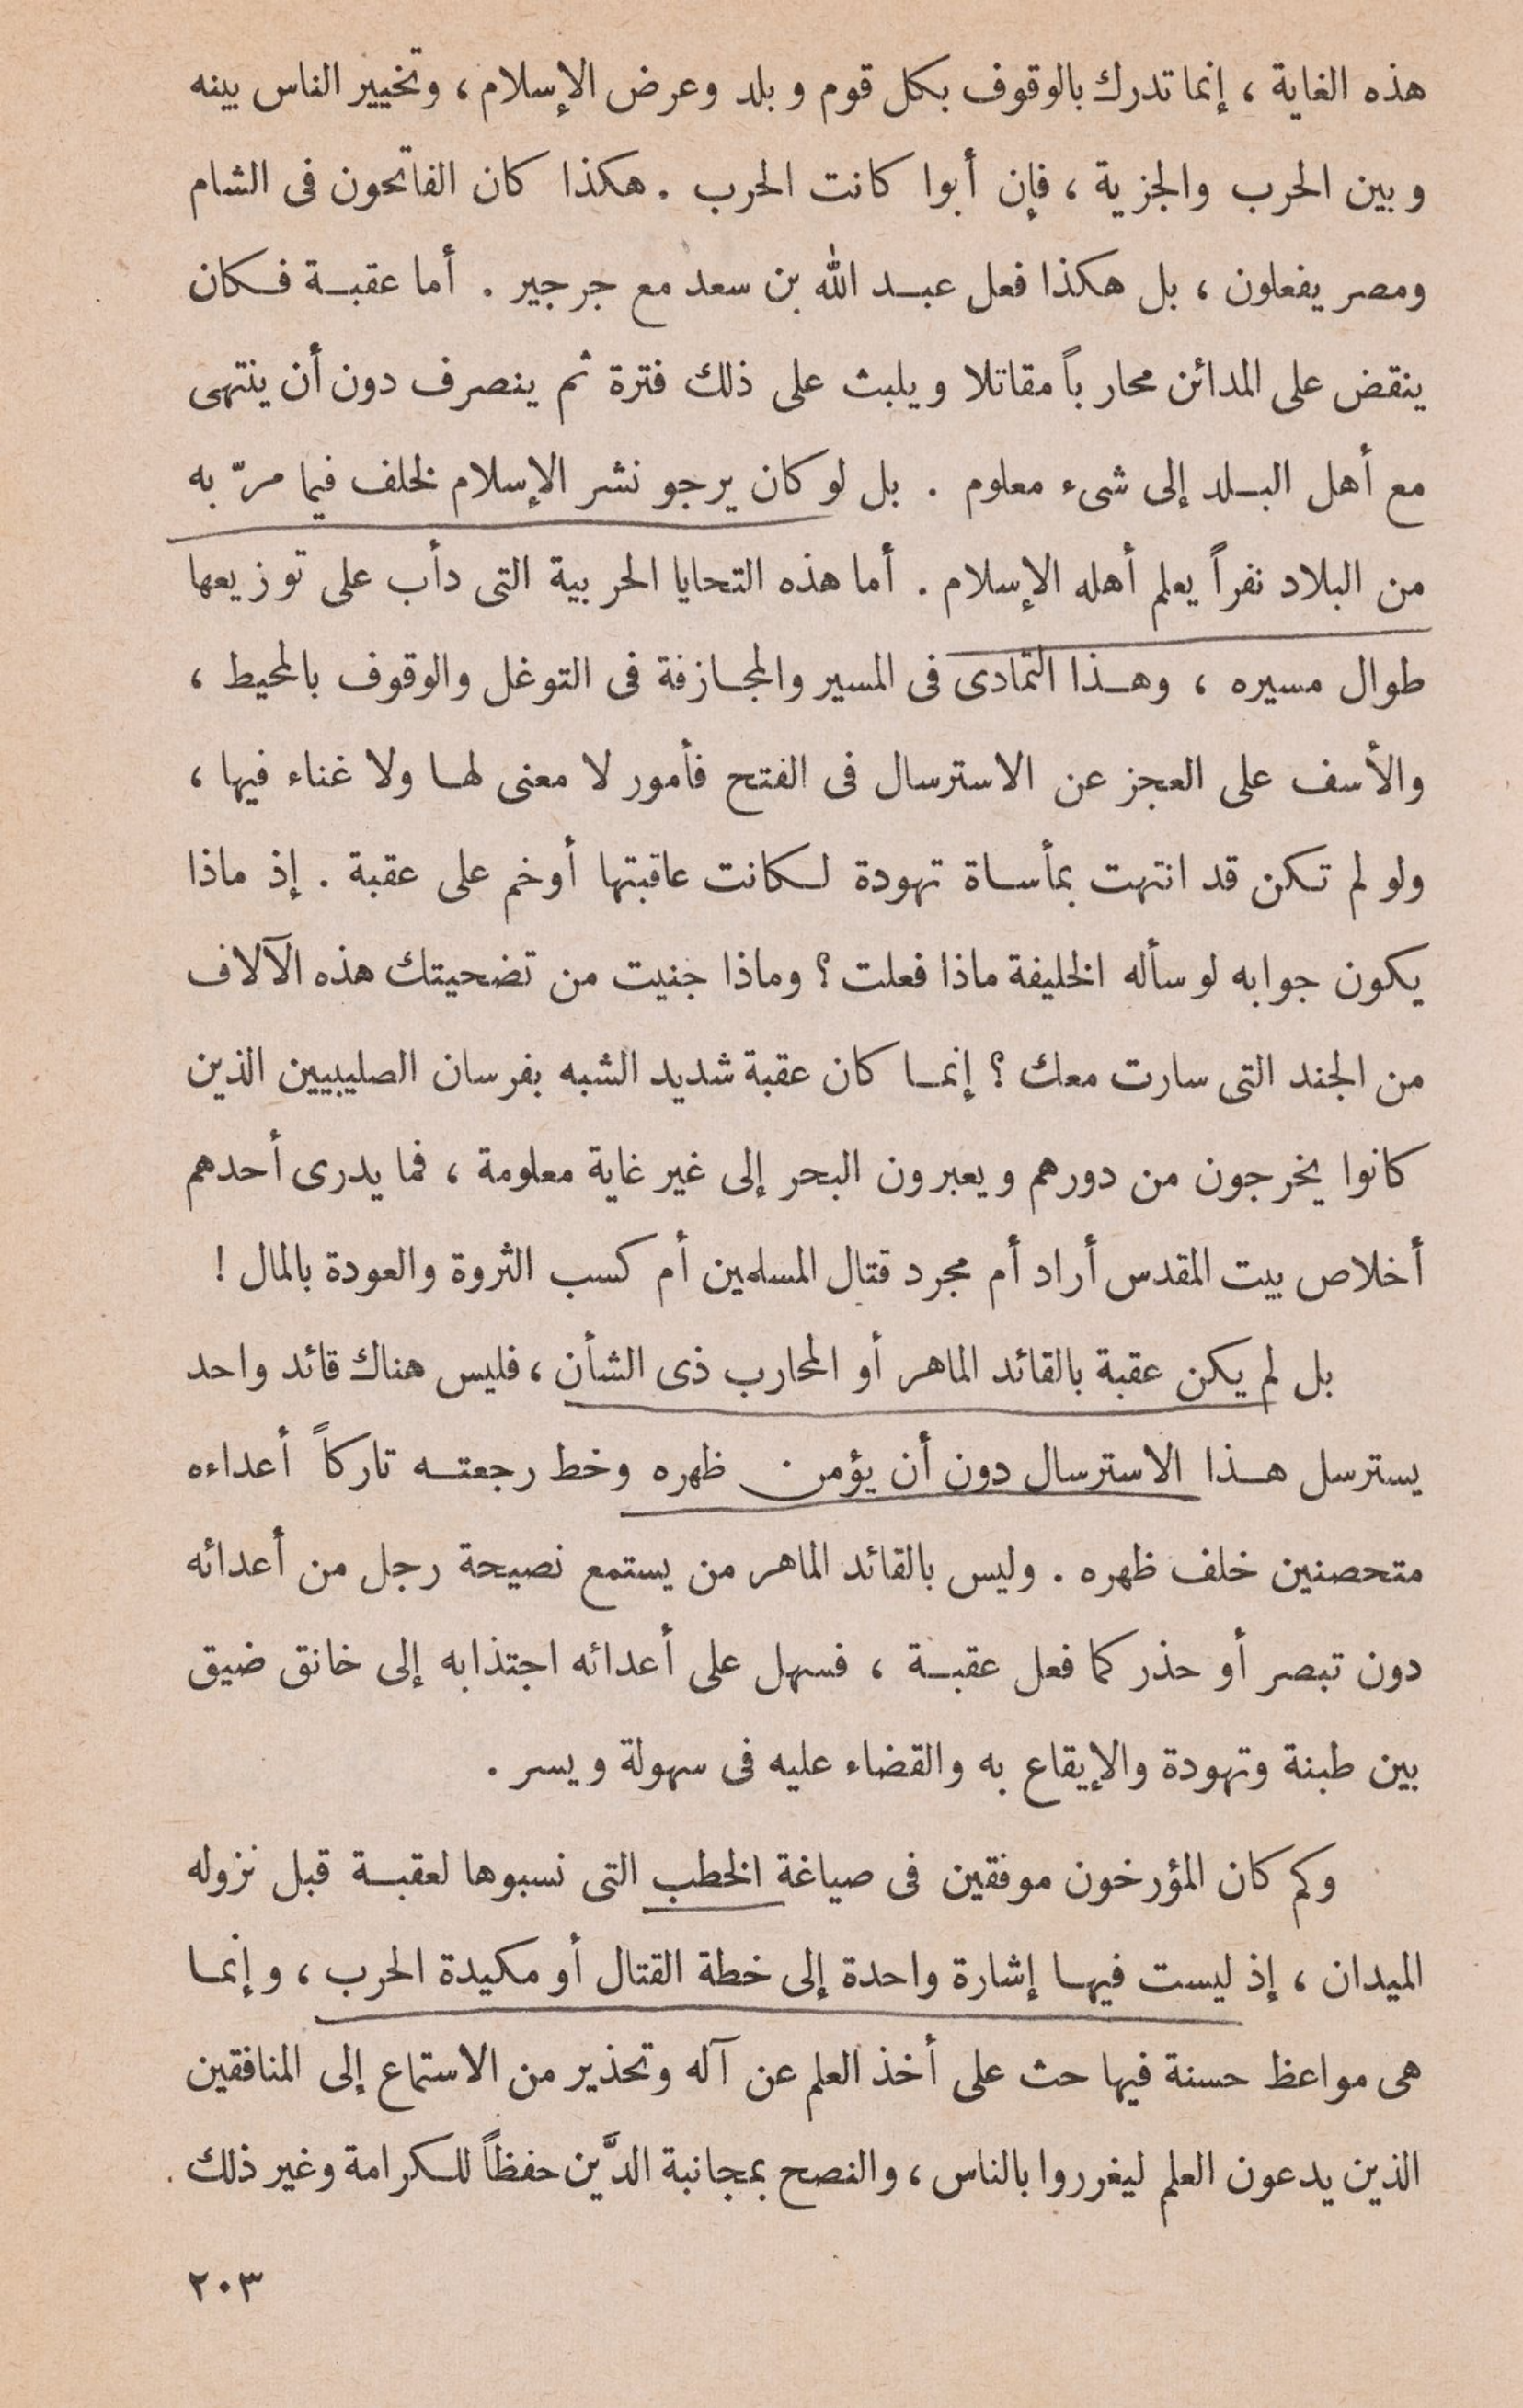 هذه الغاية ، إنما تدرك بالوقوف بكل قوم وبلد وعرض الإسلام ، وتخيير الناس بينه
وبين الحرب والجزية ، فإن أبوا كانت الحرب . هكذا كان الفاتحون فى الشام
ومصر يفعلون ، بل هكذا فعل عبد الله بن سعد مع جرجير . أما عقبة فكان
ينقض على المدائن محارباً مقاتلا ويلبث على ذلك فترة ثم ينصرف دون أن ينتهى
مع أهل البلد إلى شىء معلوم . بل لو كان يرجو نشر الإسلام لخلف فيما مرّ به
من البلاد نفراً يعلم أهله الإسلام . أما هذه التحايا الحربية التى دأب على توزيعها
طوال مسيره ، وهذا التمادى فى المسير والمجازفة فى التوغل والوقوف بالمحيط ،
والأسف على العجز عن الاسترسال فى الفتح فأمور لا معنى لها ولا غناء فيها ،
ولو لم تكن قد انتهت بمأساة تهودة لكانت عاقبتها أوخم على عقبة . إذ ماذا
يكون جوابه لو سأله الخليفة ماذا فعلت ؟ وماذا جنيت من تضحيتك هذه الآلاف
من الجند التى سارت معك ؟ إنما كان عقبة شديد الشبه بفرسان الصليبيين الذين
كانوا يخرجون من دورهم ويعبرون البحر إلى غير غاية معلومة ، فما يدرى أحدهم
أخلاص بيت المقدس أراد أم مجرد قتال المسلمين أم كسب الثروة والعودة بالمال !
بل لم يكن عقبة بالقائد الماهر أو المحارب ذى الشأن ، فليس هناك قائد واحد
يسترسل هذا الاسترسال دون أن يؤمن ظهره وخط رجعته تاركاً أعداءه
متحصنين خلف ظهره . وليس بالقائد الماهر من يستمع نصيحة رجل من أعدائه
دون تبصر أو حذر كما فعل عقبة ، فسهل على أعدائه اجتذابه إلى خانق ضيق
بين طبنة وتهودة والإيقاع به والقضاء عليه فى سهولة ويسر .
وكم كان المؤرخون موفقين فى صياغة الخطب التى نسبوها لعقبة قبل نزوله
الميدان ، إذ ليست فيها إشارة واحدة إلى خطة القتال أو مكيدة الحرب ، وإنما
هى مواعظ حسنة فيها حث على أخذ العلم عن آله وتحذير من الاستماع إلى المنافقين
الذين يدعون العلم ليغرروا بالناس ، والنصح بمجانبة الدَّين حفظاً للكرامة وغير ذلك .
٢٠٣